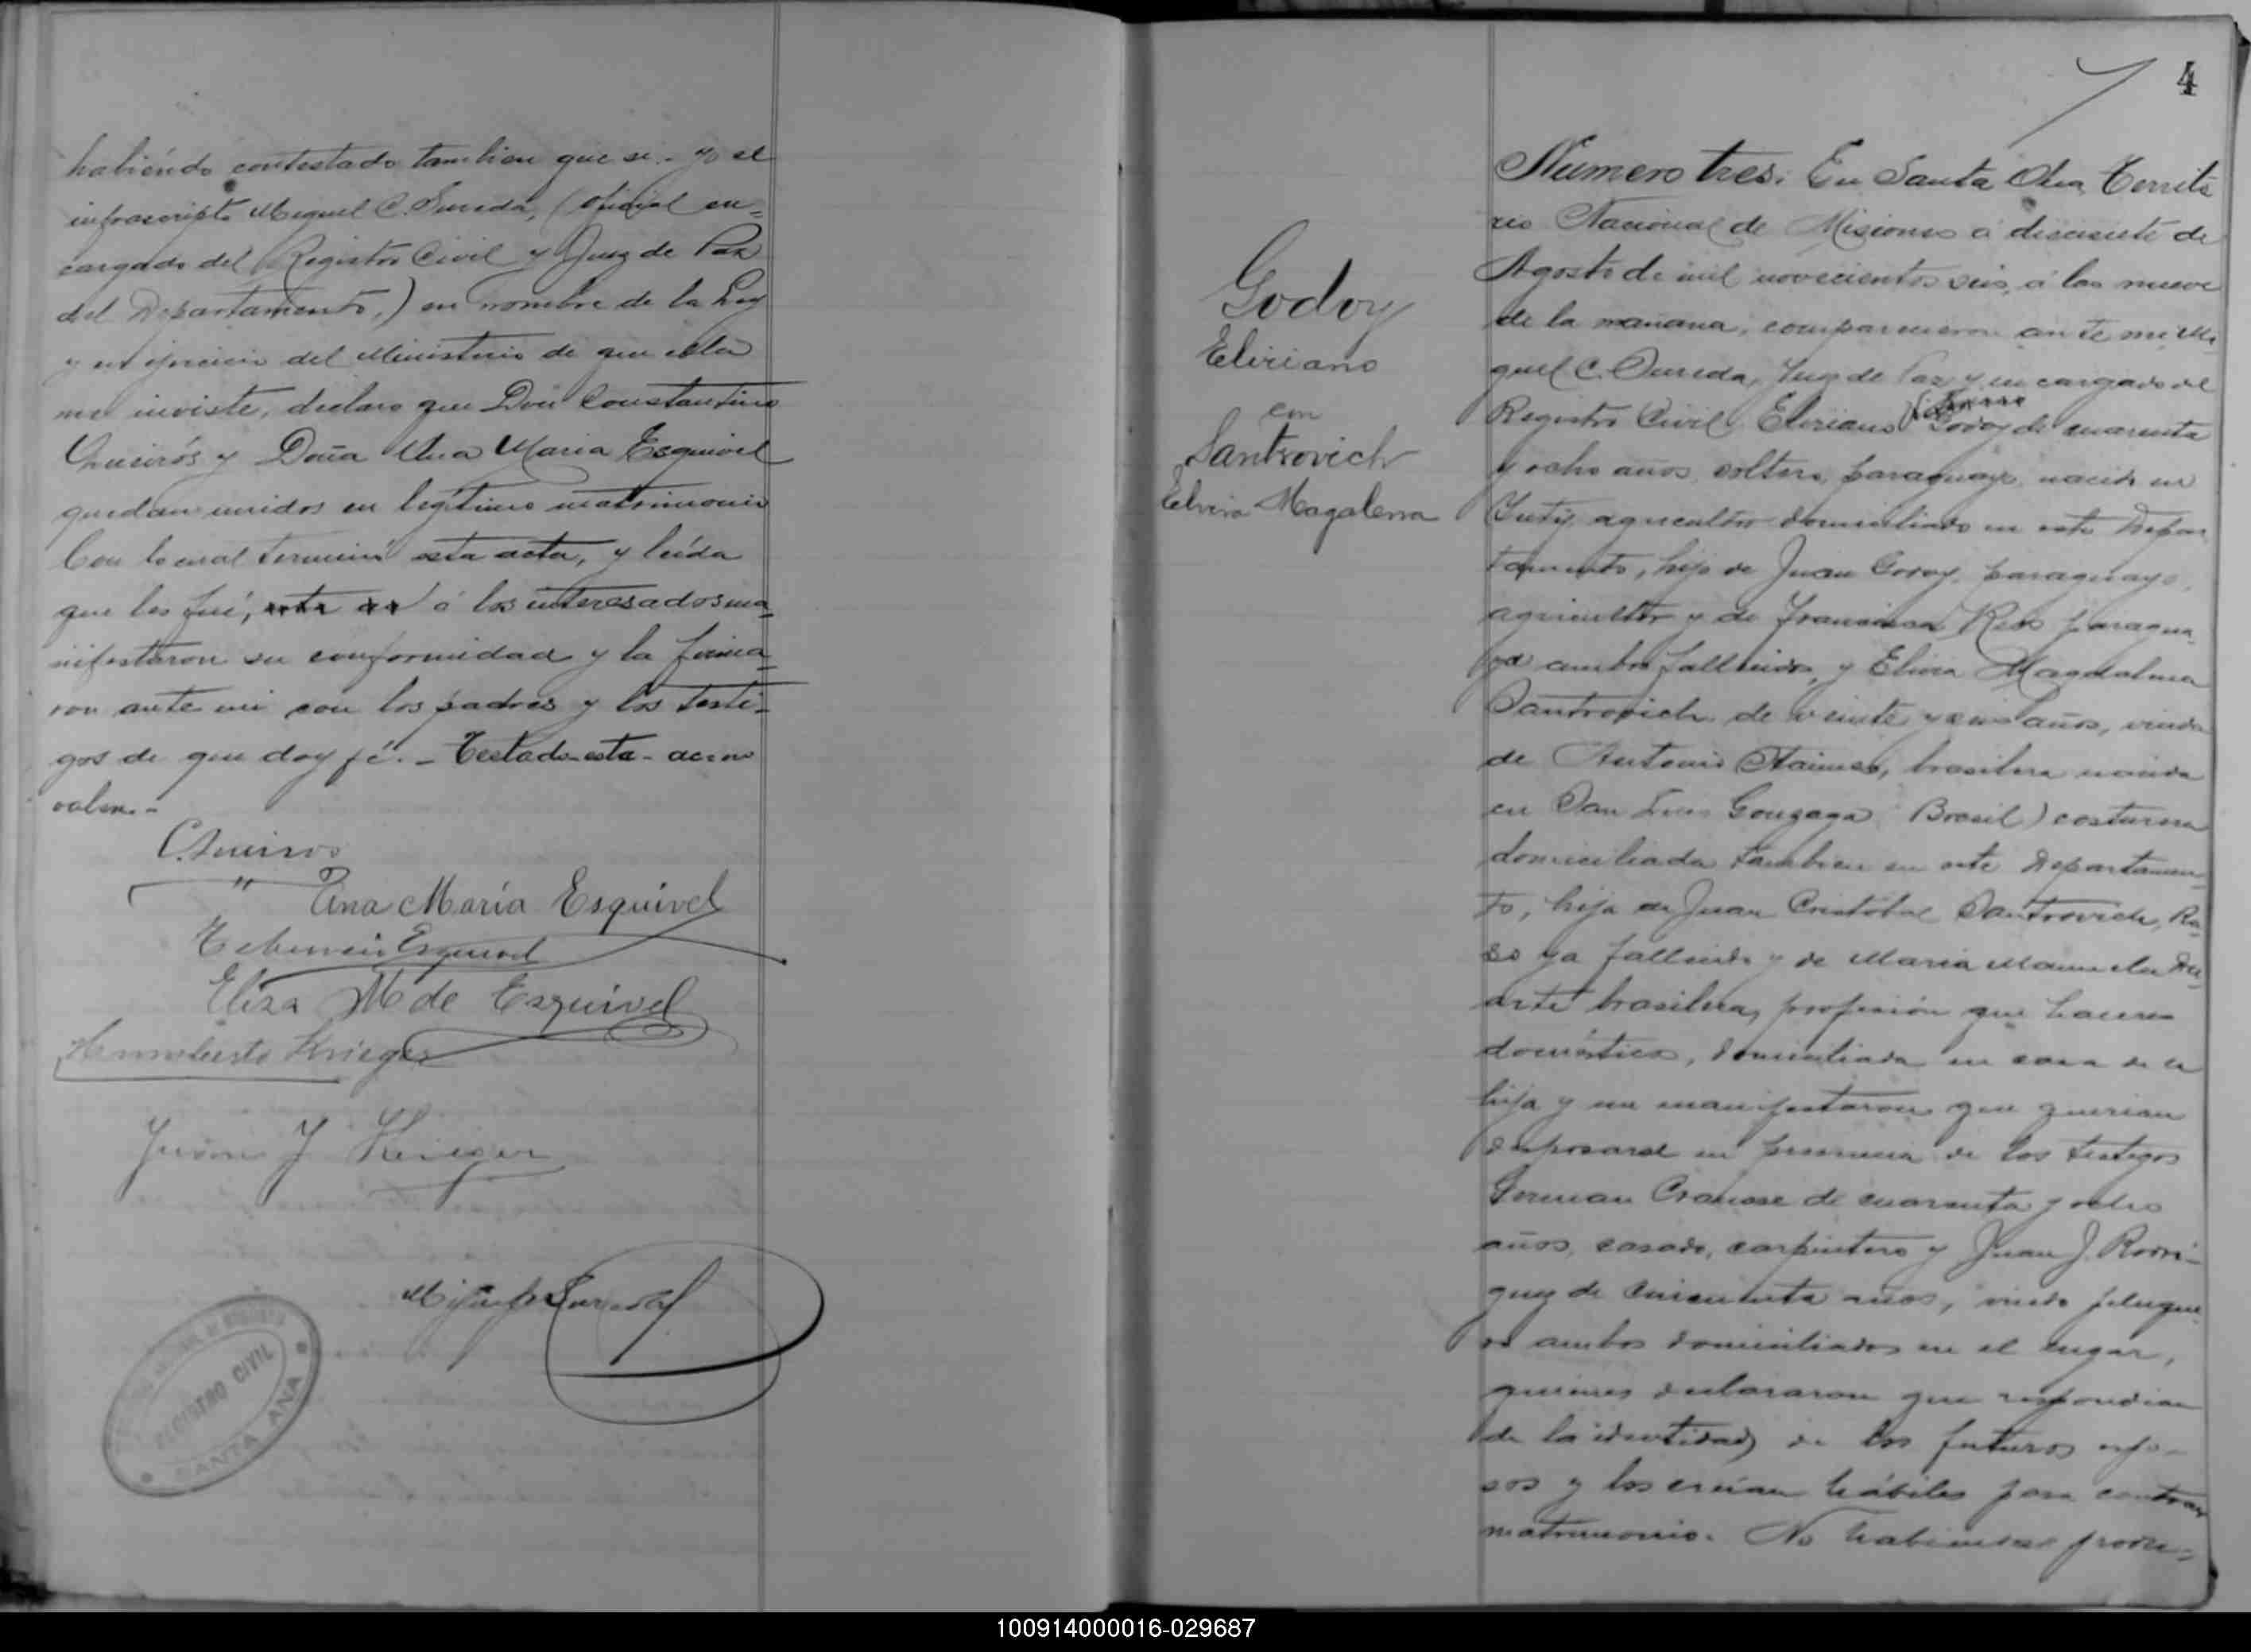 habiendo contestado tambien que si.- Yo el
infrascripto Miguel C. Sureda, (Oficial en=
cargado del Registro Civil y Juez de Paz
del Departamento,) en nombre de la Ley
y en ejercicio del Ministerio de que ella
me inviste, declaro que Don Constantino
Queirós y Doña Ana Maria Esquivel
quedan unidos en legítimo matrimonio
Con lo cual terminó esta acta, y leída
que les fué, á los interesados ma=
nifestaron su conformidad y la firma=
ron ante mi con los padres y los testi=
gos de que doy fé.- Testado-esta-
valen.-
C. Queiros
Ana María Esquivel
Esquivel
Eliza M de Esquivel
Humberto Krieger
Juan J Krieger
Miguel C Sureda
REGISTRO CIVIL
SANTA ANA
4
Godoy
Eliziano
con
Santrovich
Elvira Magalena
Numero tres. En Santa Ana, Territo
rio Nacional de Misiones á diecisiete de
Agosto de mil novecientos seis, á las nueve
de la mañana, comparecieron ante mi Mi
guel C. Sureda, Juez de Paz y encargado del
Registro Civil, Eliziano Godoy de cuarenta
y ocho años, soltero, paraguayo, nacido en
Yuty, agricultor domiciliado en este Depar
tamento, hijo de Juan Godoy, paraguayo,
agricultor y de Francisca Rios paragua
ya ambos fallecidos, y Elvira Magdalena
Santrovich de veinte y seis años, viuda
de Antonio brasilera nacida
en San Luis Gonzaga Brasil) costurera
domiciliada tambien en este Departamen=
to, hija de Juan Cristóbal Santrovich, Ru=
so ya fallecido y de Maria Manuela Du=
arte brasilera, profesión que haceres
domésticos, domiciliada en casa de su
hija y me manifestaron que querian
desposarse en presencia de los testigos
German Cranase de cuarenta y ocho
años, casado, carpintero y Juan J. Rodri=
guez de cincuenta años, viudo peluque=
ro ambos domiciliados en el lugar,
quienes declararon que respondian
de la identidad de los futuros espo-
sos y los creian hábiles para contraer
matrimonio. No habiendose produ=
100914000016-029687